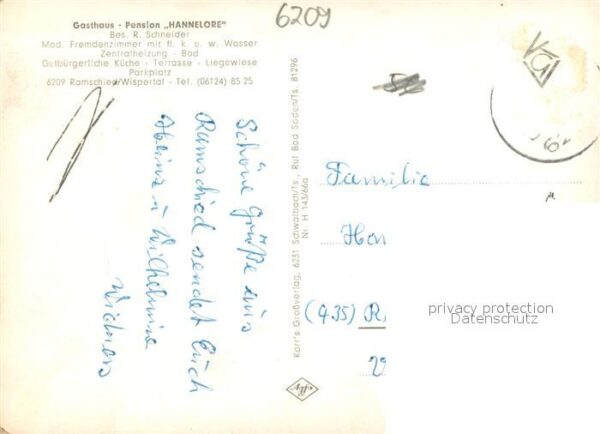 6209
Gasthaus - Pension „HANNELORE"
Bes. R. Schneider
Mod. Fremdenzimmer mit fl. k. u. w. Wasser
Zentralheizung - Bad
Gutbürgerliche Küche - Terrasse - Liegewiese
Parkplatz
6209 Ramschied/Wispertal - Tel. (06124) 85 25
Schöne Grüße aus
Ramschied sendet Euch
Heinz u Wilhelmine
Karr's Großverlag, 6231 Schwalbach/Ts., Ruf Bad Soden/Ts. 81296
Nr. H 143/66a
Familie
Hen
(435) R.
privacy protection
Datenschutz